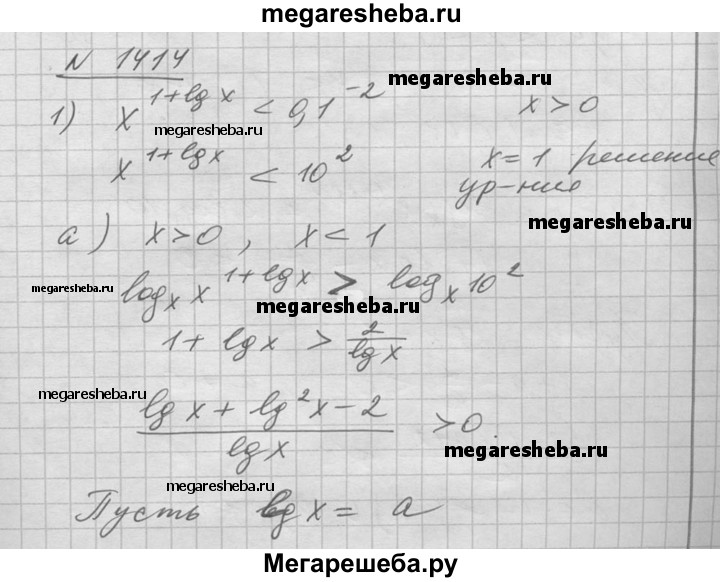 megaresheba.ru
N 1414
megaresheba.ru
1) x^{1+lg x} < 0,1^{-2} x > 0
megaresheba.ru
x^{1+lg x} < 10^2 x = 1 решение
ур-ние
megaresheba.ru
а) x > 0, x < 1
megaresheba.ru
log_x x^{1+lg x} > log_x 10^2
megaresheba.ru
1 + lg x > \frac{2}{lg x}
megaresheba.ru
\frac{lg x + lg^2 x - 2}{lg x} > 0.
megaresheba.ru
megaresheba.ru
Пусть lg x = a
Мегарешеба.ру